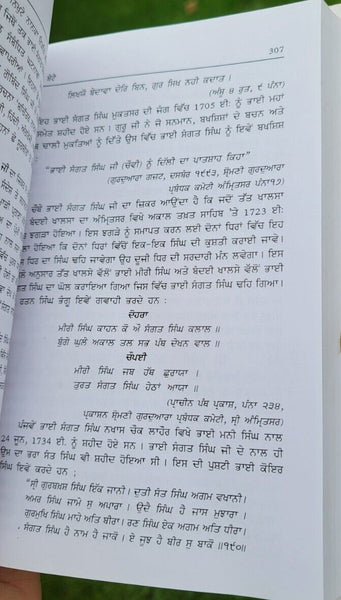 ਬੇਟੇ 307
ਲਿਖਯੋ ਬੇਦਾਵਾ ਦੇਰਿ ਬਿਨ, ਗੁਰ ਸਿਖ ਨਹੀ ਕਦਾਤ।
(ਅੰਸੂ ੪ ਰੁਤ, ੯ ਪੰਨਾ)
ਇਹ ਭਾਈ ਸੰਗਤ ਸਿੰਘ ਮੁਕਤਸਰ ਦੀ ਜੰਗ ਵਿੱਚ 1705 ਈ: ਨੂੰ ਭਾਈ ਮਹਾਂ
ਸਮੇਤ ਸ਼ਹੀਦ ਹੋਏ ਸਨ। ਗੁਰੂ ਜੀ ਨੇ ਜੋ ਸਨਮਾਨ, ਬਖਸ਼ਿਸ਼ ਦੇ ਬਚਨ ਅਤੇ
ਚਾਲੀ ਮੁਕਤਿਆਂ ਨੂੰ ਦਿੱਤੇ ਉਸ ਵਿੱਚ ਭਾਈ ਸੰਗਤ ਸਿੰਘ ਨੂੰ ਇਵੇਂ ਬਖਸ਼ਿਸ਼
“ਭਾਈ ਸੰਗਤ ਸਿੰਘ ਜੀ (ਚੌਥੀ) ਨੂੰ ਦਿੱਲੀ ਦਾ ਪਾਤਸ਼ਾਹ ਕਿਹਾ”
(ਗੁਰਦੁਆਰਾ ਗਜ਼ਟ, ਦਸੰਬਰ ੧੯੯੩, ਸ਼੍ਰੋਮਣੀ ਗੁਰਦੁਆਰਾ
ਪ੍ਰਬੰਧਕ ਕਮੇਟੀ ਅੰਮ੍ਰਿਤਸਰ ਪੰਨਾ੧੭)
ਚੌਥੇ ਭਾਈ ਸੰਗਤ ਸਿੰਘ ਜੀ ਦਾ ਜ਼ਿਕਰ ਆਉਂਦਾ ਹੈ ਕਿ ਜਦੋਂ ਤੱਤ ਖਾਲਸਾ
ਬੰਦਈ ਖਾਲਸਾ ਦਾ ਅੰਮ੍ਰਿਤਸਰ ਵਿਖੇ ਅਕਾਲ ਤਖਤ ਸਾਹਿਬ 'ਤੇ 1723 ਈ:
ਝਗੜਾ ਹੋਇਆ। ਇਸ ਝਗੜੇ ਨੂੰ ਸਮਾਪਤ ਕਰਨ ਲਈ ਦੋਨਾਂ ਧਿਰਾਂ ਵਿੱਚ ਇਹ
ਹੋਇਆ ਕਿ ਦੋਨਾਂ ਧਿਰਾਂ ਵਿੱਚੋਂ ਇਕ-ਇਕ ਸਿੰਘ ਦੀ ਕੁਸ਼ਤੀ ਕਰਾਈ ਜਾਵੇ।
ਧਿਰ ਦਾ ਸਿੰਘ ਢਹਿ ਜਾਵੇਗਾ ਉਹ ਦੂਜੀ ਧਿਰ ਦੀ ਸਰਦਾਰੀ ਮੰਨ ਲਵੇਗਾ। ਇਸ
ਅਨੁਸਾਰ ਤੱਤ ਖਾਲਸੇ ਵੱਲੋਂ ਭਾਈ ਮੀਰੀ ਸਿੰਘ ਅਤੇ ਬੰਦਈ ਖਾਲਸੇ ਵੱਲੋਂ ਭਾਈ
ਸਿੰਘ ਦਾ ਘੋਲ ਕਰਾਇਆ ਗਿਆ ਜਿਸ ਵਿੱਚ ਭਾਈ ਸੰਗਤ ਸਿੰਘ ਢਹਿ ਗਿਆ।
ਰਤਨ ਸਿੰਘ ਭੰਗੂ ਇਵੇਂ ਗਵਾਹੀ ਭਰਦੇ ਹਨ :
ਦੋਹਰਾ
ਮੀਰੀ ਸਿੰਘ ਕਾਹਨ ਕੋ ਔ ਸੰਗਤ ਸਿੰਘ ਕਲਾਲ॥
ਬੁੰਗੇ ਘੁਲੇ ਅਕਾਲ ਤਲ ਸਭ ਪੰਥ ਦੇਖਨ ਵਾਲ॥
ਚੌਪਈ
ਮੀਰੀ ਸਿੰਘ ਜਬ ਹੱਥ ਛੁਰਾਯਾ।
ਤੁਰਤ ਸੰਗਤ ਸਿੰਘ ਹੇਠਾਂ ਆਯਾ॥
(ਪ੍ਰਾਚੀਨ ਪੰਥ ਪ੍ਰਕਾਸ਼, ਪੰਨਾ ੨੩੪,
ਪ੍ਰਕਾਸ਼ਨ ਸ਼੍ਰੋਮਣੀ ਗੁਰਦੁਆਰਾ ਪ੍ਰਬੰਧਕ ਕਮੇਟੀ, ਸ੍ਰੀ ਅੰਮ੍ਰਿਤਸਰ)
ਪੰਜਵੇਂ ਭਾਈ ਸੰਗਤ ਸਿੰਘ ਨਖਾਸ ਚੌਕ ਲਾਹੌਰ ਵਿਖੇ ਭਾਈ ਮਨੀ ਸਿੰਘ ਨਾਲ
24 ਜੂਨ, 1734 ਈ. ਨੂੰ ਸ਼ਹੀਦ ਹੋਏ ਸਨ। ਭਾਈ ਸੰਗਤ ਸਿੰਘ ਜੀ ਦੇ ਨਾਲ ਹੀ
ਉਸ ਦਾ ਭਰਾ ਸੰਤ ਸਿੰਘ ਵੀ ਸ਼ਹੀਦ ਹੋਇਆ ਸੀ। ਇਸ ਦੀ ਪੁਸ਼ਟੀ ਭਾਈ ਕੋਇਰ
ਸਿੰਘ ਇਵੇਂ ਕਰਦੇ ਹਨ ;
“ਸ੍ਰੀ ਗੁਰਬਖਸ਼ ਸਿੰਘ ਇੱਕ ਜਾਨੀ। ਦੁਤੀ ਸੰਤ ਸਿੰਘ ਅਗਮ ਵਖਾਨੀ।
ਅਮਰ ਸਿੰਘ ਜਾਮੇ ਸੁ ਅਪਾਰਾ। ਉਦੈ ਸਿੰਘ ਹੈ ਜਾਸ ਮੁਝਾਰਾ।
ਗੁਰਮੁਖਿ ਸਿੰਘ ਮਾਹੇ ਅਤਿ ਬੀਰਾ। ਰਣ ਸਿੰਘ ਏਕ ਅਗਮ ਅਤਿ ਧੀਰਾ।
ਸੰਗਤ ਸਿੰਘ ਹੈ ਨਾਮ ਹੈ ਜਾਕੋ। ਏ ਜੂਝ ਹੈ ਬੀਰ ਸੁ ਬਾਕੋ॥੧੯੦॥